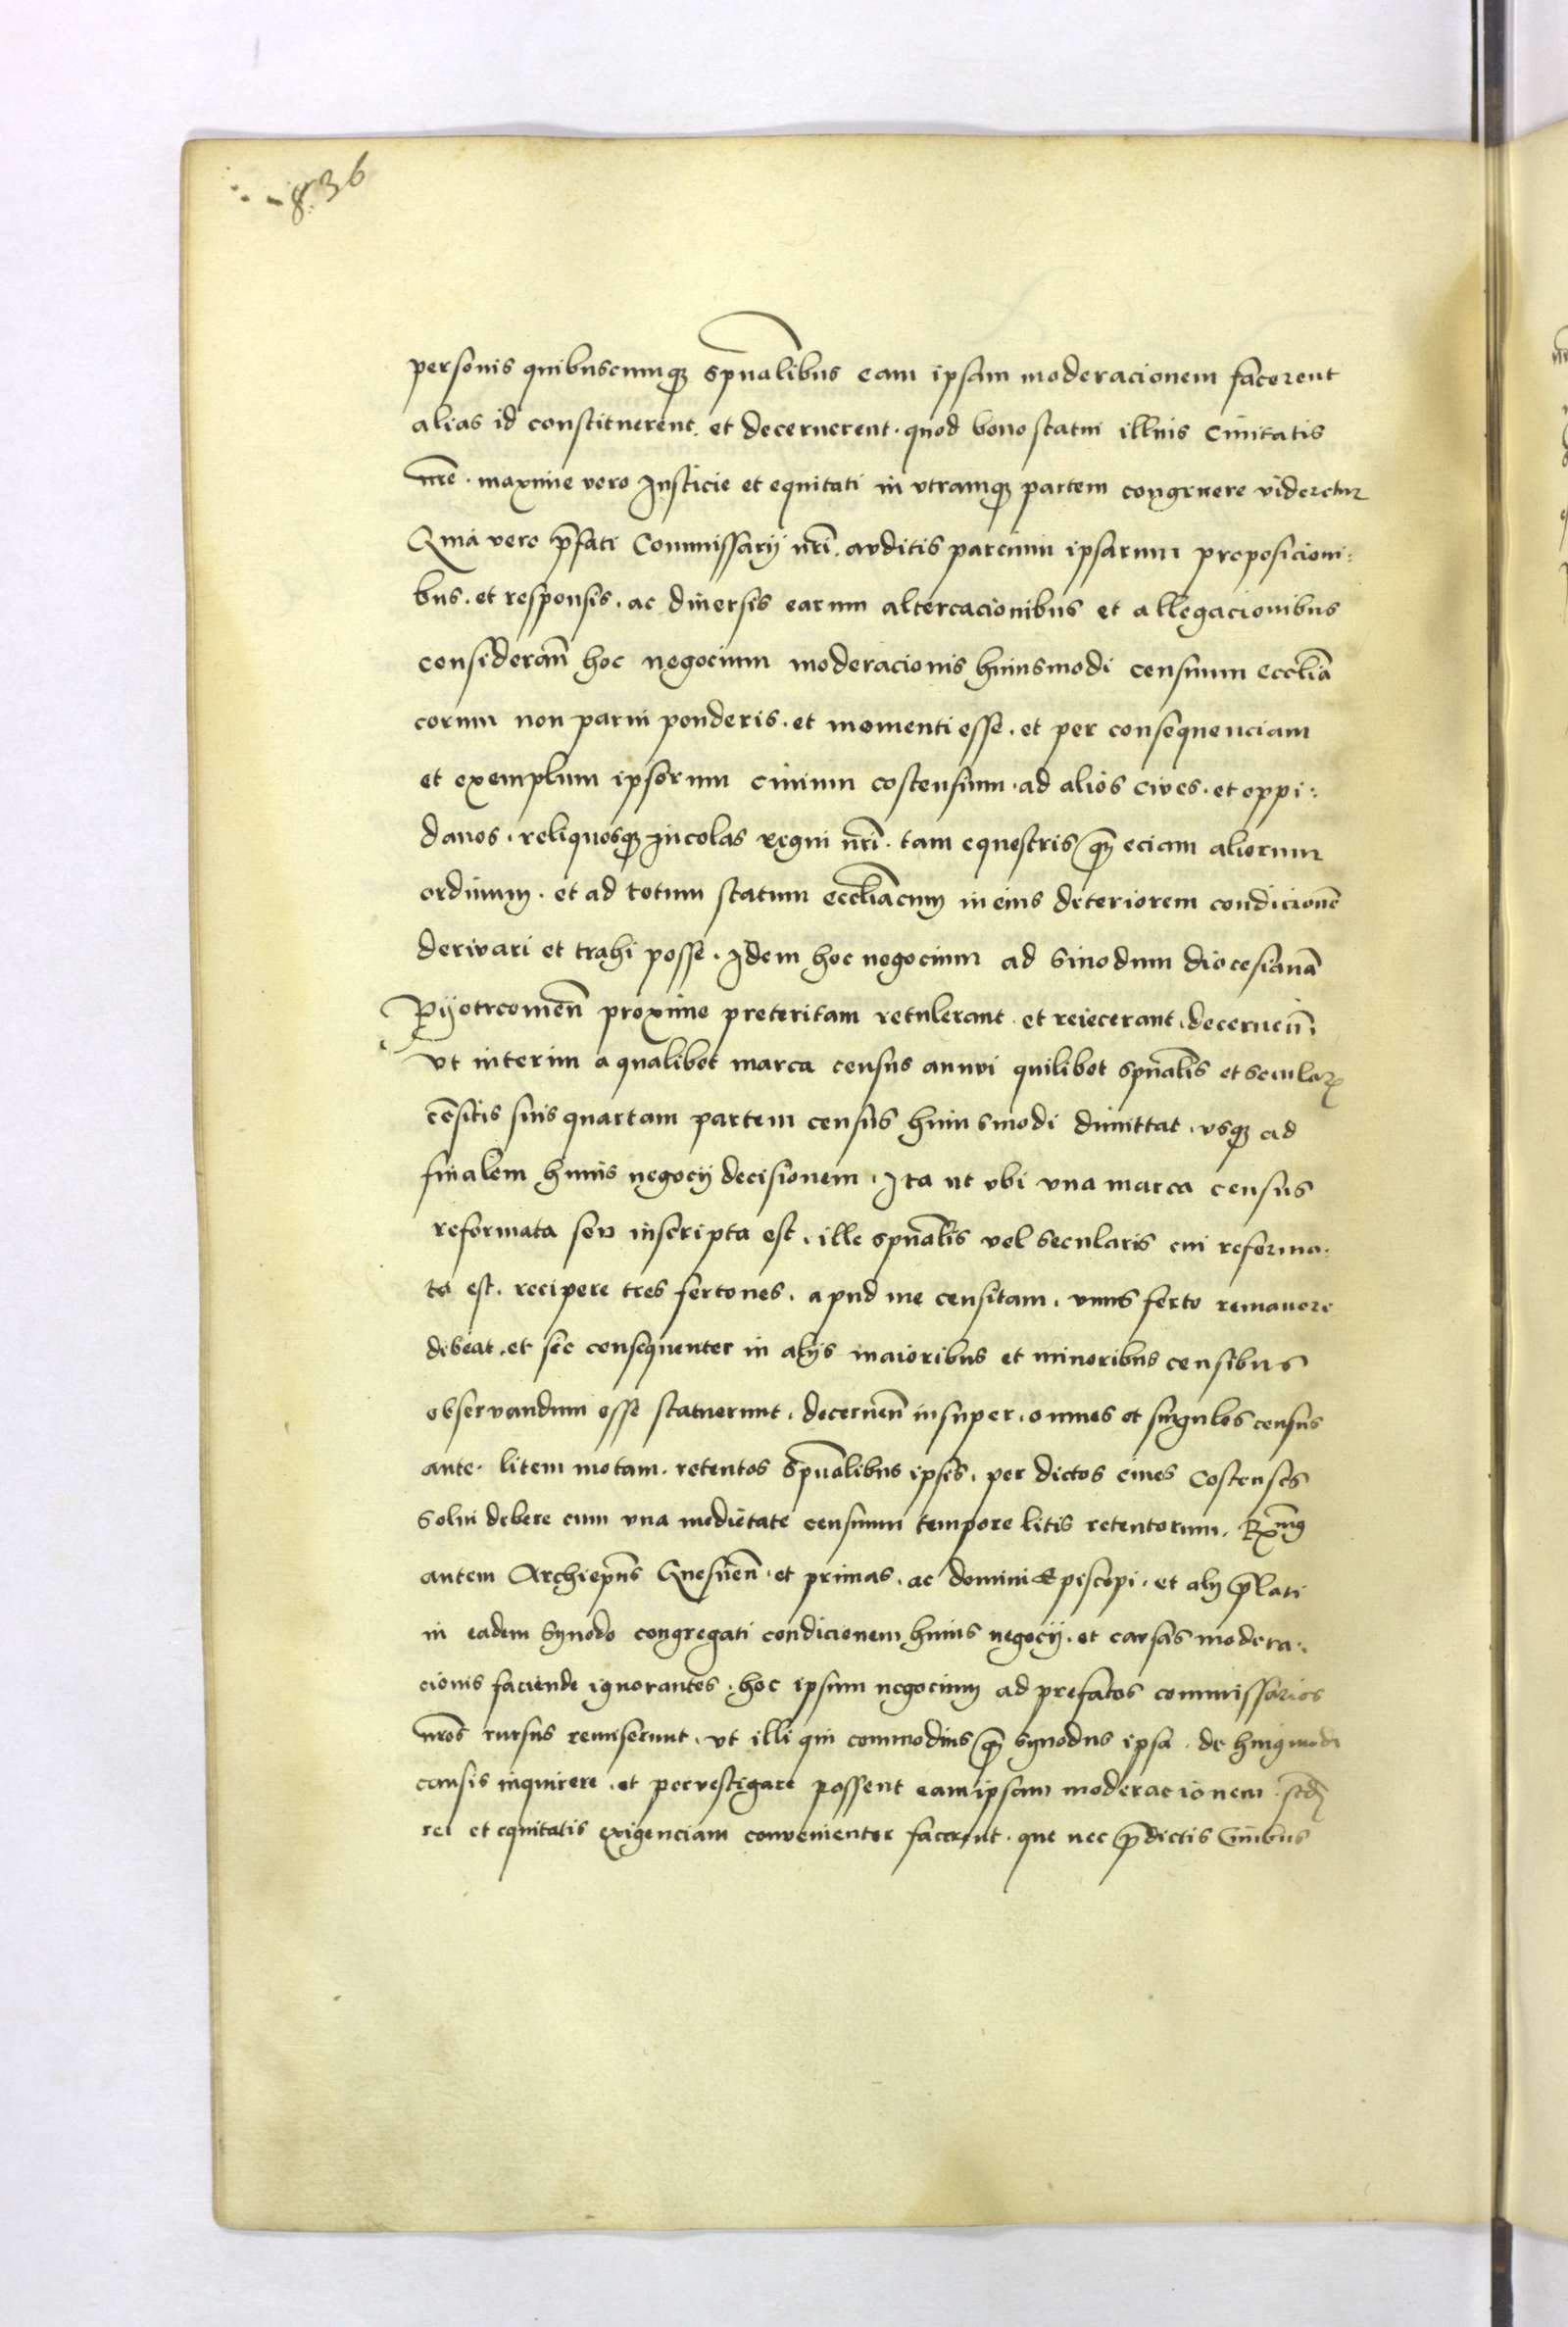 836
personis quibuscumqꝫ spũalibus eam ipsam moderacionem facerent
alias id constituerent. et decernerent. quod bono statui illuis Ciuitatis
nr̃e. maxime vero Justicie et equitati in vtramqꝫ partem congruere videretur
Quia vero p̃fati Commissarij nr̃i. auditis parcium ipsarum proposicioni:
bus. et responsis. ac diuersis earum altercacionibus et allegacionibus
considerañ hoc negocium moderacionis huiusmodi censuum eccl̃ia
corum non parui ponderis. et momenti esse. et per consequenciam
et exemplum ipsorum ciuium costensium. ad alios ciues. et oppi:
danos. reliquosqꝫ Incolas regni nr̃i. tam equestris q̃ꝫ eciam aliorum
ordinum. et ad totum statum eccl̃iacum in eius deteriorem condicionẽ
derivari et trahi posse. Idem hoc negocium ad Sinodum diocesianã
Pijotrcomeñ proxime preteritam retulerant. et reiecerant. decerneñ.
vt interim a qualibet marca census annui quilibet spũalis et secularꝭ
cẽsitis suis quartam partem census huiusmodi dimittat. vsqꝫ ad
finalem huius negocij decisionem. Ita ut vbi vna marca census
reformata seu inscripta est. ille spũalis vel secularis cui reforma.
ta est. recipere tres fertones. apud me censitam. vnus ferto remanere
debeat. et sic consequenter in alijs maioribus et minoribus censibus
observandum esse statuerunt. decerneñ insuper. omnes et singulos census
ante. litem motam. retentos spũalibus ipsis. per dictos ciues Costenses
Solui debere cum vna medietate censuum tempore litis retentorum. Rx̃mꝰ
autem Archiep̃us Gnesneñ. et primas. ac domini Episcopi. et alij p̃lati
in eadem Synodo congregati condicionem huius negocij. et causas modera.
cionis faciende ignorantes. hoc ipsum negocium ad prefatos commissarios
nr̃os rursus remiserunt. vt illi qui commodius q̃ꝫ synodus ipsa. de huiꝰmodi
causis inquirere. et pervestigare possent eam ipsam moderacionem. scd̃ꝫ
rei et equitatis exigenciam convenienter facerent. que nec p̃dictis Ciuibus